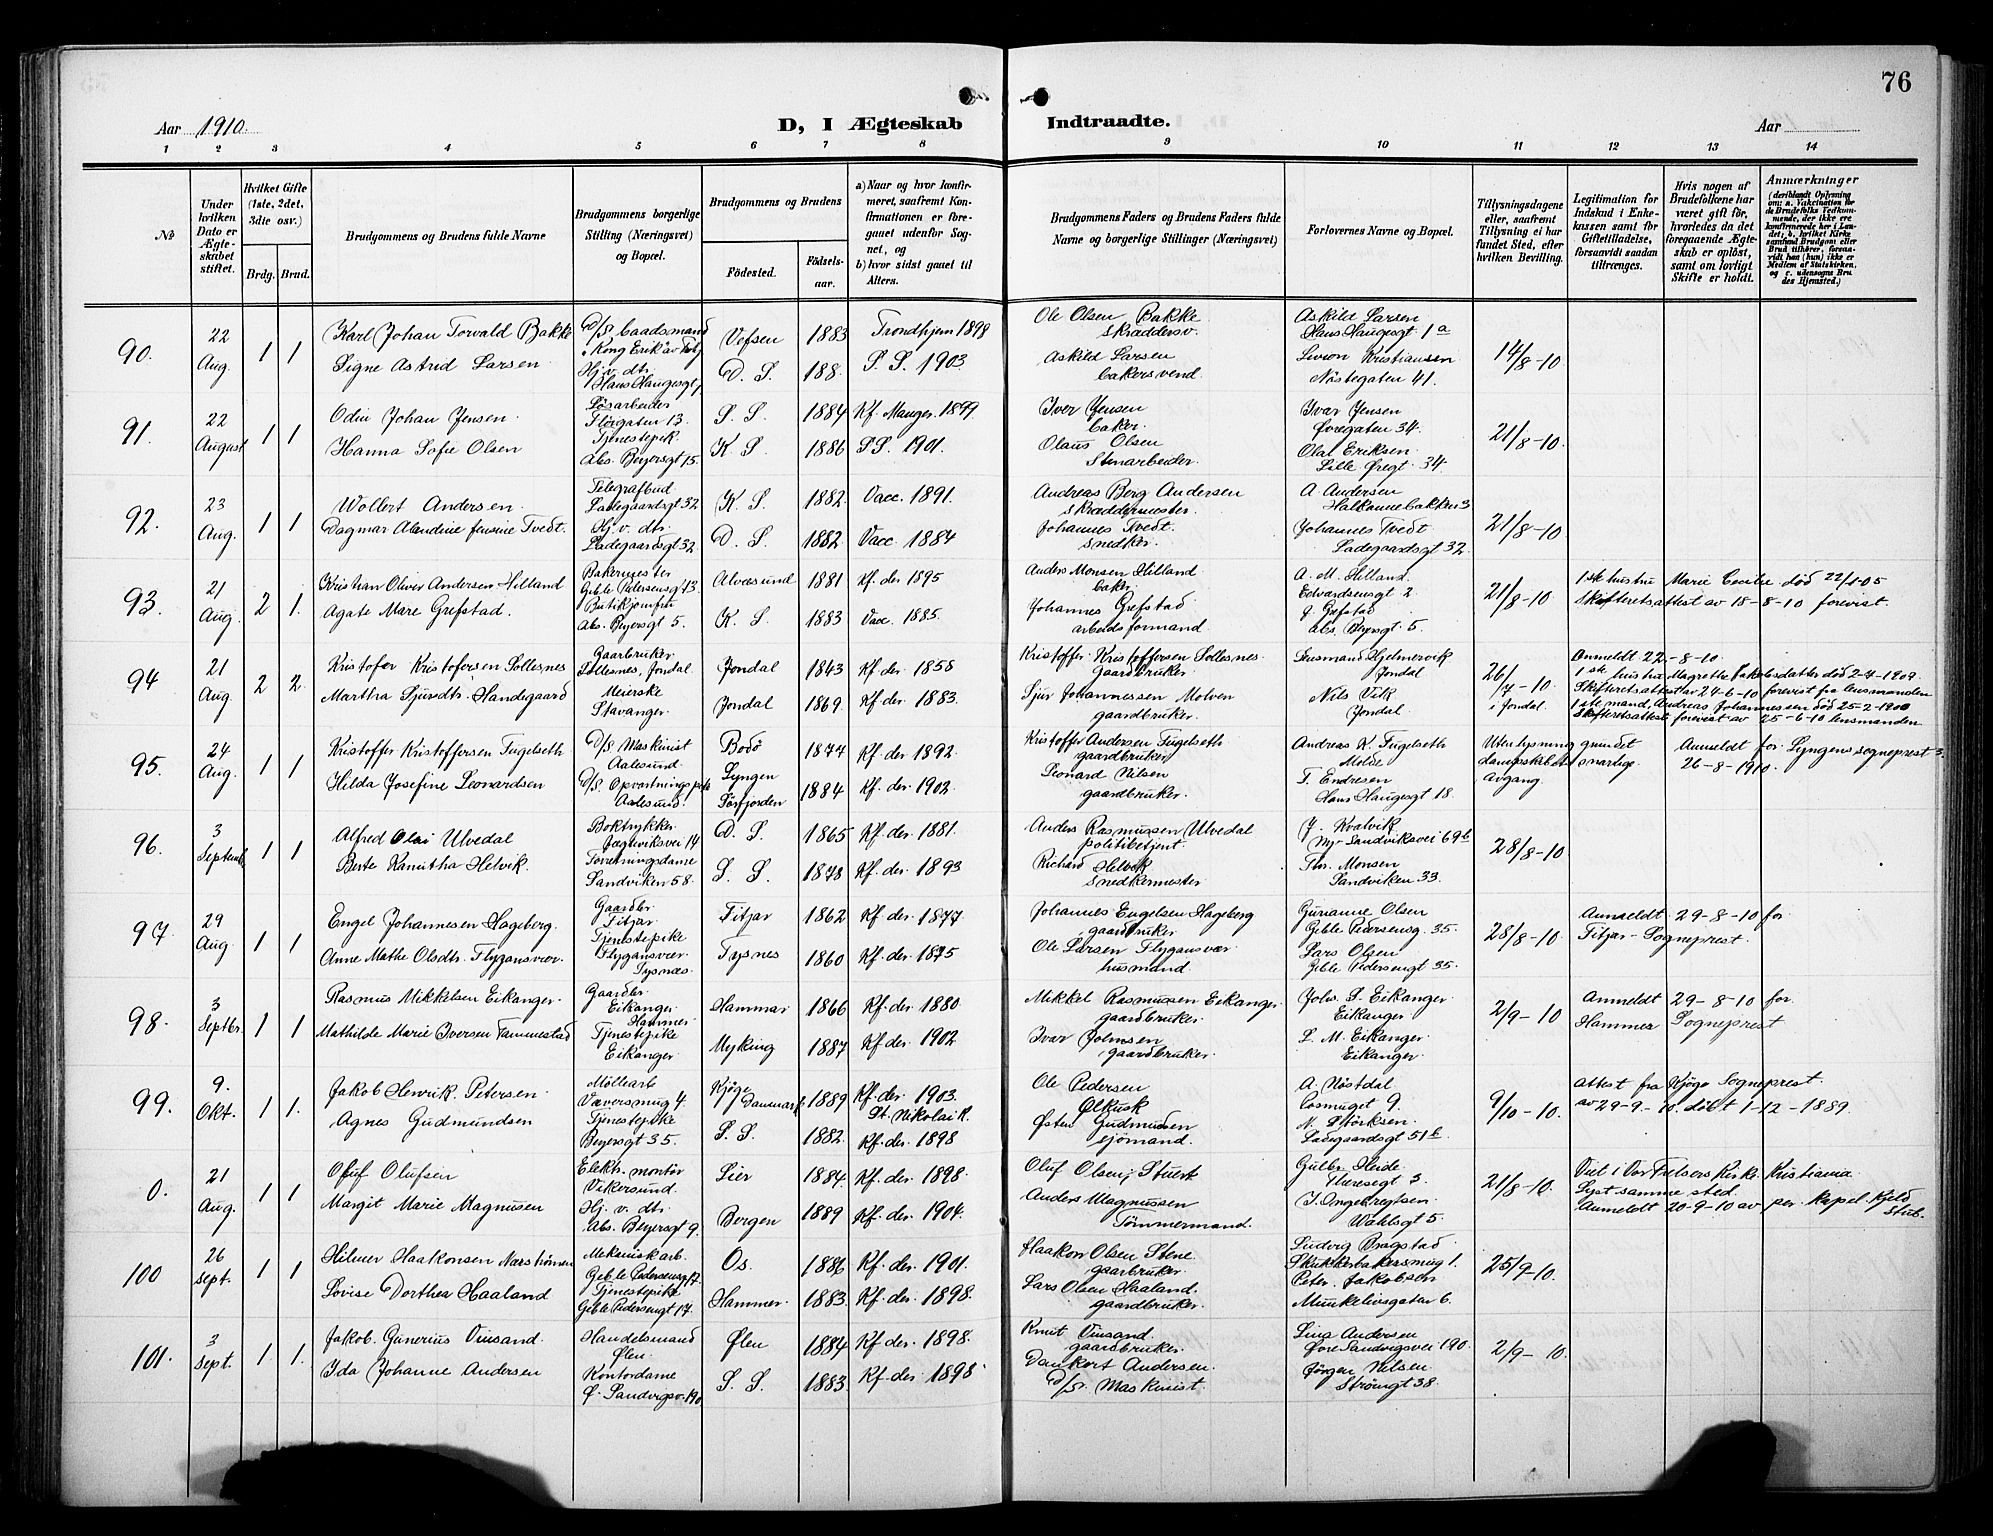 76
Aar 1910.
D, I Ægteskab Indtraadte.
Aar
1 2 3 4 5 6 7 8 9 10 11 12 13 14
No
Under hvilken Dato er Ægteskabet stiftet.
Hvilket Gifte (1ste, 2det, 3die osv.)
Brdg. Brud.
Brudgommens og Brudens fulde Navne
Brudgommens borgerlige Stilling (Næringsvei) og Bopæl.
Brudgommens og Brudens
Födested.
Födselsaar.
a) Naar og hvor konfirmeret, saafremt Konfirmationen er foregaaet udenfor Sognet, og
b) hvor sidst gaaet til Alters.
Brudgommens Faders og Brudens Faders fulde Navne og borgerlige Stillinger (Næringsvei)
Forlovernes Navne og Bopæl.
Tillysningsdagene eller, saafremt Tillysning ei har fundet Sted, efter hvilken Bevilling.
Legitimation for Indskud i Enkekassen samt for Giftetilladelse, forsaavidt saadan tiltrænges.
Hvis nogen af Brudefolkene har været gift før, hvorledes da det foregaaende Ægteskab er opløst, samt om lovligt Skifte er holdt.
Anmærkninger
90. 22 Aug. 1 1
Karl Johan Torvald Bakke
Vefsen 1883 Trondhjem 1898
Ole Olsen Bakke skræddersv.
Askild Larsen Hans Haugesgt 1a
Signe Astrid Larsen
Hj. v. dtr. Hans Haugesgt 1
D. S. 188. S. S. 1903.
Askild Larsen bakersvend.
Kristiansen Nöstegaten 41.
14/8-10
91. 22 August 1 1
Odin Johan Jensen.
Løsarbeider
S. S. 1884 Kf. Manger. 1899
Iver Jensen baker.
Ivar Jensen Øvregaten 34.
Hanna Sofie Olsen
Tjenestepik. Abs. Beyersgt 15.
K S. 1886 S S. 1901.
Olaus Olsen Stenarbeider.
Olai Eriksen. Lille Øvregt 34
21/8-10.
92. 23 Aug. 1 1
Wollert Andersen.
Telegrafbud Ladegaardsgt 32
K. S. 1882. Vacc. 1891.
Andreas Berg Andersen skræddermester.
A Andersen Halkannebakken 3
Dagmar Alendine Jensine Tvedt.
Hj. v. dtr. Ladegaardsgt 32
D. S. 1882. Vacc. 1884
Johannes Tvedt. snedker.
Johannes Tvedt Ladegaardsgt 32.
21/8-10
93. 21 Aug. 2 1.
Kristian Oliver Andersen Hilland
Bakermester Geble Pedersensgt 13.
Alvøsund 1881 Kf. der 1895
Anders Monsen Hilland baker.
A. M. Hilland. Edvardsensgt 2
Agate Mare Grefstad.
Butikjomfru Abs. Beyersgt 5.
K. S. 1883 Vacc. 1885.
Johannes Grefstad arbeidsformand.
J. Grefstad Abs. Beyersgt 5.
21/8-10
1ste hustru Marie Cecilie død 22/1-05
Skifteretsattest av 18-8-10 forevist.
94 21 Aug. 2 2.
Kristofer Kristofersen Sollesnes
Gaarbruker Sollesnes, Jondal
Jondal 1843 Kf. der 1858
Kristoffer Kristoffersen Sollesnes. Gaardbruker.
Lensmand Hjelmervik Jondal
Martha Sjursdtr. Handegaard
Meierske Stavanger.
Jondal 1869. Kf. der 1883.
Sjur Johannessen Molven gaardbruker.
Nils Vik Jondal.
26/7-10 i Jondal.
Anmeldt 22-8-10.
1ste hustru Magrethe Jakobsdatter død 2-4-1909.
Skifteretsattest av 24-6-10 forevist fra lensmanden
1ste mand, Andreas Johannessen død 25-2-1900
Skifteretsattest forevist av 25-6-10 lensmanden
95. 24 Aug. 1 1
Kristoffer Kristoffersen Fugelseth
D/S Maskinist Aalesund.
Bodö 1874 Kf. der 1892.
Kristoffer Andersen Fugelseth gaardbruker.
Andreas K. Fugelseth Molde
Hilda Josefine Leonardsen
D/S. Opvartningspike Aalesund.
Lyngen Sörfjorden 1884 Kf. der. 1902.
Leonard Nilsen gaardbruker.
T. Endresen Hans Haugesgt 18.
Uten lysning grundet dampskibets snarlige avgang.
Anmeldt for Lyngens sogneprest 26-8-1910.
96. 3 Septemb. 1 1
Alfred Olai Ulvedal
Boktrykker. Jægtviksvei 14
D. S. 1865 Kf. der. 1881.
Anders Rasmussen Ulvedal politibetjent.
J. Kvalvik Nye Sandviksvei 69b
Berte Kanutha Helvik.
Forretningsdame Sandviken 58.
S. S. 1878 Kf. der. 1893
Richard Helvik snedkermester
Thr. Monsen Sandviken 33.
28/8-10.
97. 29 Aug. 1 1
Engel Johannesen Hageberg.
Gaardbr. Fitjar.
Fitjar 1862 Kf der 1877
Johannes Engelsen Hageberg gaardbruker
Gurianne Olsen Geble Pedersensg. 35.
Anne Mathe Olsdtr. Flygansvær.
Tjenestepike Flygansvær. Tysnæs.
Tysnes 1860 Kf. der 1875
Ole Larsen Flygansvær husmand.
Lars Olsen Geble Pedersensgt 35.
28/8-10.
Anmeldt 29-8-10 for Fitjar-Sogneprest.
98. 3 Septbr. 1 1
Rasmus Mikkelsen Eikanger.
Gaardbr. Eikanger Hammer
Hammar 1866 Kf. der 1880
Mikkel Rasmussen Eikanger. gaardbruker.
Johs. S. Eikanger. Eikanger
Mathilde Marie Iversen Tammestad
Tjenestepike Eikanger
Myking 1887 Kf der. 1902
Ivar Johnsen gaardbruker.
L. M. Eikanger. Eikanger.
2/9-10
Anmeldt 29-8-10 for Hammer Sogneprest
99. 9. Okt. 1 1.
Jakob Henrik Petersen.
Møllearb. Væversmug 4
Kjöge Danmark 1889 Kf. der. 1903. St. Nikolai K.
Ole Pedersen Ølkusk
A. Nöstdal Cosmuget 9.
Agnes Gudmundsen
Tjenestepike Beyersgt 35.
S. S. 1882. Kf. der. 1898
Østen Gudmundsen sjömand.
N. Störksen. Ladegaardsgt 51b
9/10-10.
Attest fra Kjöge Sogneprest. av 29-9-10. døbt 1-12-1889.
0. 21 Aug. 1 1
Oluf Olufsen
Elektr. montör Vikersund.
Lier 1884. Kf. der. 1898.
Oluf Olsen, Stuert
Gulbr. Heide. Theresegt 3.
Margit Marie Magnusen
Hj. v. dtr. Abs. Beyersgt 9.
Bergen 1889 Kf. der. 1904.
Anders Magnussen Tömmermand.
J. Ongebregtsen. Wahlsgt 5.
21/8-10.
Viet i Vor Frelsers Kirke Kristiania.
Lyst samme sted.
Anmeldt 20-9-10 av per. kapel. Kjeld Stub.
100 26 Sept. 1 1
Hilmer Haakonsen
Mekanisk arb. Geble Pedersensg 17.
Os. 1886 Kf. der. 1901.
Haakon Olsen Stene gaarbruker.
Ludvig Bragstad Skukkerbakersmug 1.
Lovise Dorthea Haaland
Tjenestepike Geble Pedersensgt 17.
Hammer. 1883. Kf. der. 1898.
Lars Olsen Haaland. gaardbruker.
Peter Jakobsen Munkelivsgaten 6.
25/9-10.
101. 3 Sept. 1. 1.
Jakob. Gunerius Vinsand.
Handelsmand Ølen.
Ølen 1884 Kf. der. 1898.
Knut Vinsand. gaardbruker.
Lina Andersen Øvre Sandvigsvei 190.
Ida Johanne Andersen
Kontordame Ø. Sandvigsv. 190
S. S. 1883. Kf. der. 1898
Dankert Andersen. D/S. Maskinist.
Jörgen Nilsen Strömgt 38.
2/9-10.